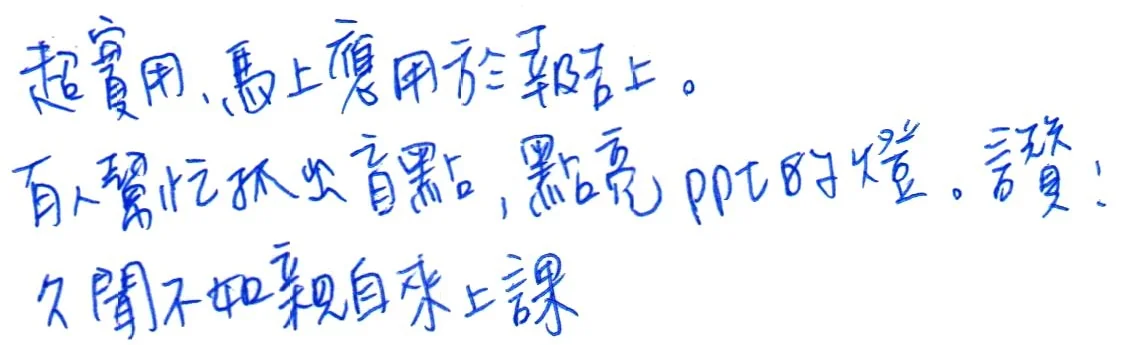 超實用、馬上應用於報告上。
有人幫忙抓出盲點，點亮ppt的燈。讚！
久聞不如親自來上課